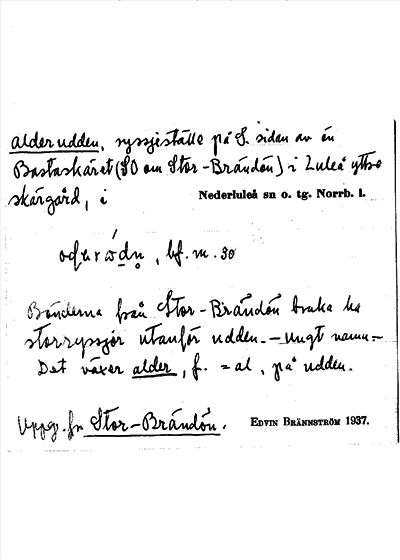 alderudden, ryssjeställe på S. sidan av ön
Bastaskäret (SO om Stor-Brändön) i Luleå yttre
skärgård, i Nederluleå sn o. tg. Norrb. l.
, bf. m. 30
Bönderna från Stor-Brändön bruka ha
storryssjor utanför udden. — Ungt namn. —
Det växer alder, f. = al, på udden.
Uppg. fr. Stor-Brändön. EDVIN BRÄNNSTRÖM 1937.